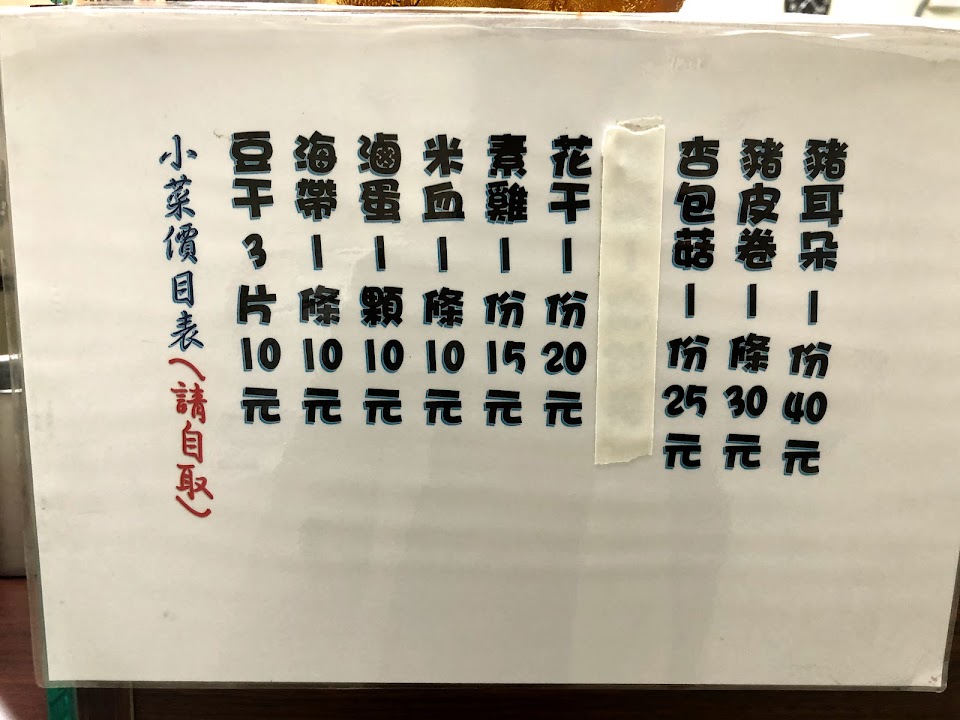 小菜價目表(請自取)
豆干3片10元
海帶1條10元
滷蛋1顆10元
米血1條10元
素雞1份15元
花干1份20元
杏包菇1份25元
豬皮卷1條30元
豬耳朵1份40元